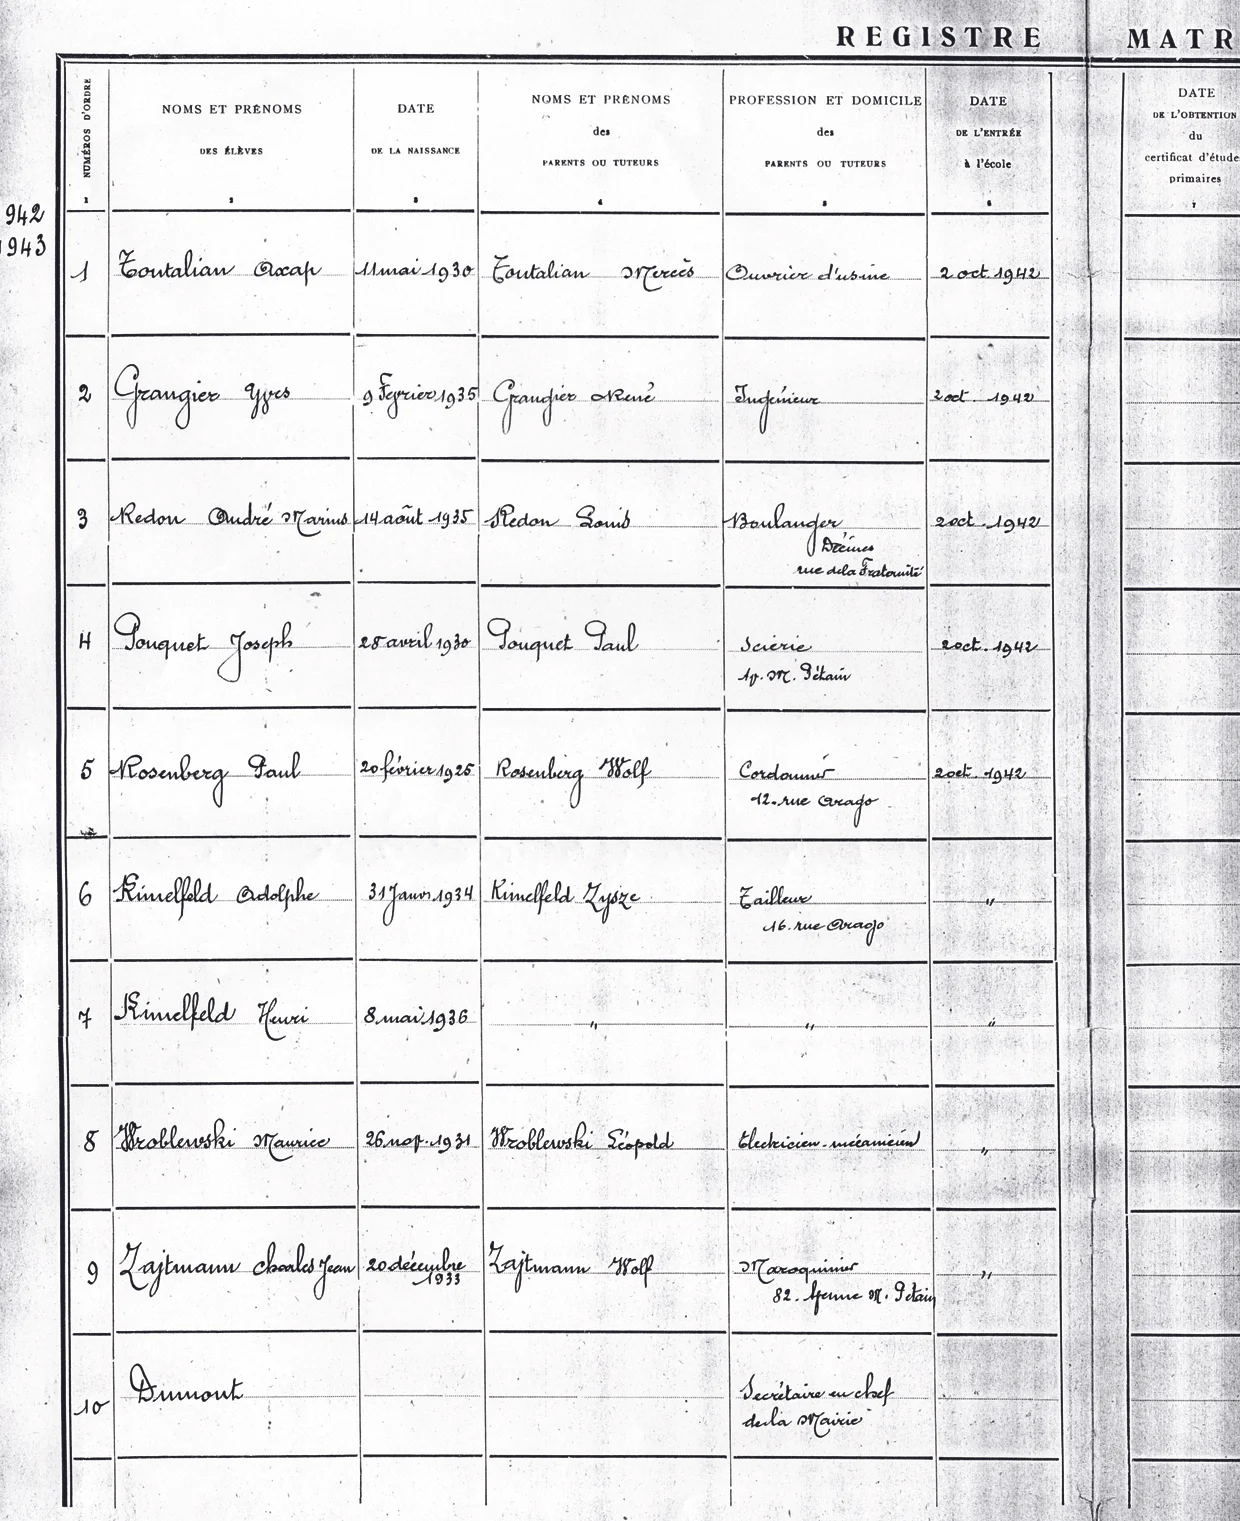 REGISTRE MATR
NUMÉROS D'ORDRE
NOMS ET PRÉNOMS
DES ÉLÈVES
DATE
DE LA NAISSANCE
NOMS ET PRÉNOMS
des
PARENTS OU TUTEURS
PROFESSION ET DOMICILE
des
PARENTS OU TUTEURS
DATE
DE L'ENTRÉE
à l'école
DATE
DE L'OBTENTION
du
certificat d'étude
primaires
1 2 3 4 5 6 7
942
1943
1 Toutalian Axap 11 mai 1930 Toutalian Mercès Ouvrier d'usine 2 oct 1942
2 Grangier Yves 9 Février 1935 Grangier René Ingénieur 2 oct. 1942
3 Redon André Marius 14 août 1935 Redon Louis Boulanger 2 oct. 1942
Décines
rue de la Fraternité
4 Pouquet Joseph 28 avril 1930 Pouquet Paul Scierie 2 oct. 1942
M. Pétain
5 Rosenberg Paul 20 février 1925 Rosenberg Wolf Cordonnier 2 oct. 1942
12. rue Arago
6 Kimelfeld Adolphe 31 Janv 1934 Kimelfeld Zysze Tailleur "
16. rue Arago
7 Kimelfeld Henri 8 mai 1936 " " "
8 Wroblewski Maurice 26 nov. 1931 Wroblewski Léopold Electricien-mécanicien "
9 Zajtmann Charles Jean 20 décembre Zajtmann Wolf Maroquinier "
1933
82. Avenue M. Pétain
10 Dumont Secrétaire en chef
de la Mairie